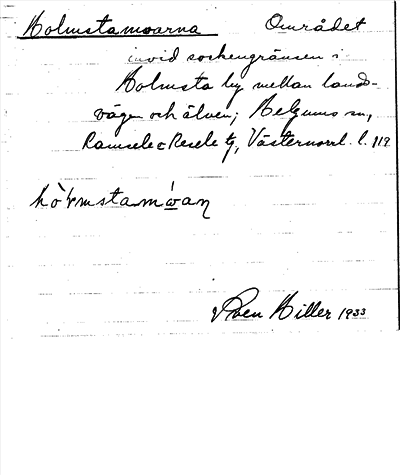 Holmstamoarna Området
invid sockengränsen i
Holmsta by mellan lands-
vägen och älven; Helgums sn,
Ramsele o Resele tg, Västernorrl. l. 112
Sven Hiller 1933